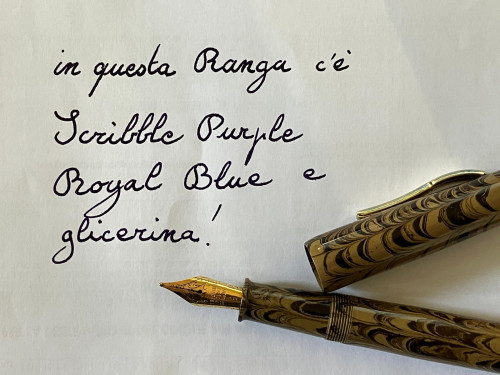 in questa Ranga c'è
Scribble Purple
Royal Blue e
glicerina!